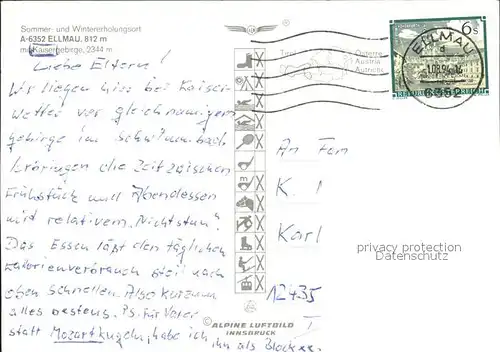 Sommer- und Wintererholungsort
A-6352 ELLMAU, 812 m
mit Kaisergebirge, 2344 m
Liebe Eltern!
Wir liegen hier bei Kaiser-
wetter vor gleichnamigem
gebirge im Schwimmbad.
bringen die Zeit zwischen
Frühstück und Abendessen
mit relativem "Nichtstun".
Das Essen läßt den täglichen
Kalorienverbrauch steil nach
oben schnellen. Also kurzum
alles bestens. PS. für Vater
statt Mozartkugeln, habe ich
ihn als Block
Tirol
Österr
Austria
Autriche
6s
REPUBLIK ÖSTERREICH
ELLMAU
6352
An Fam
K.
Karl
privacy protection
Datenschutz
12435
I
© ALPINE LUFTBILD
INNSBRUCK